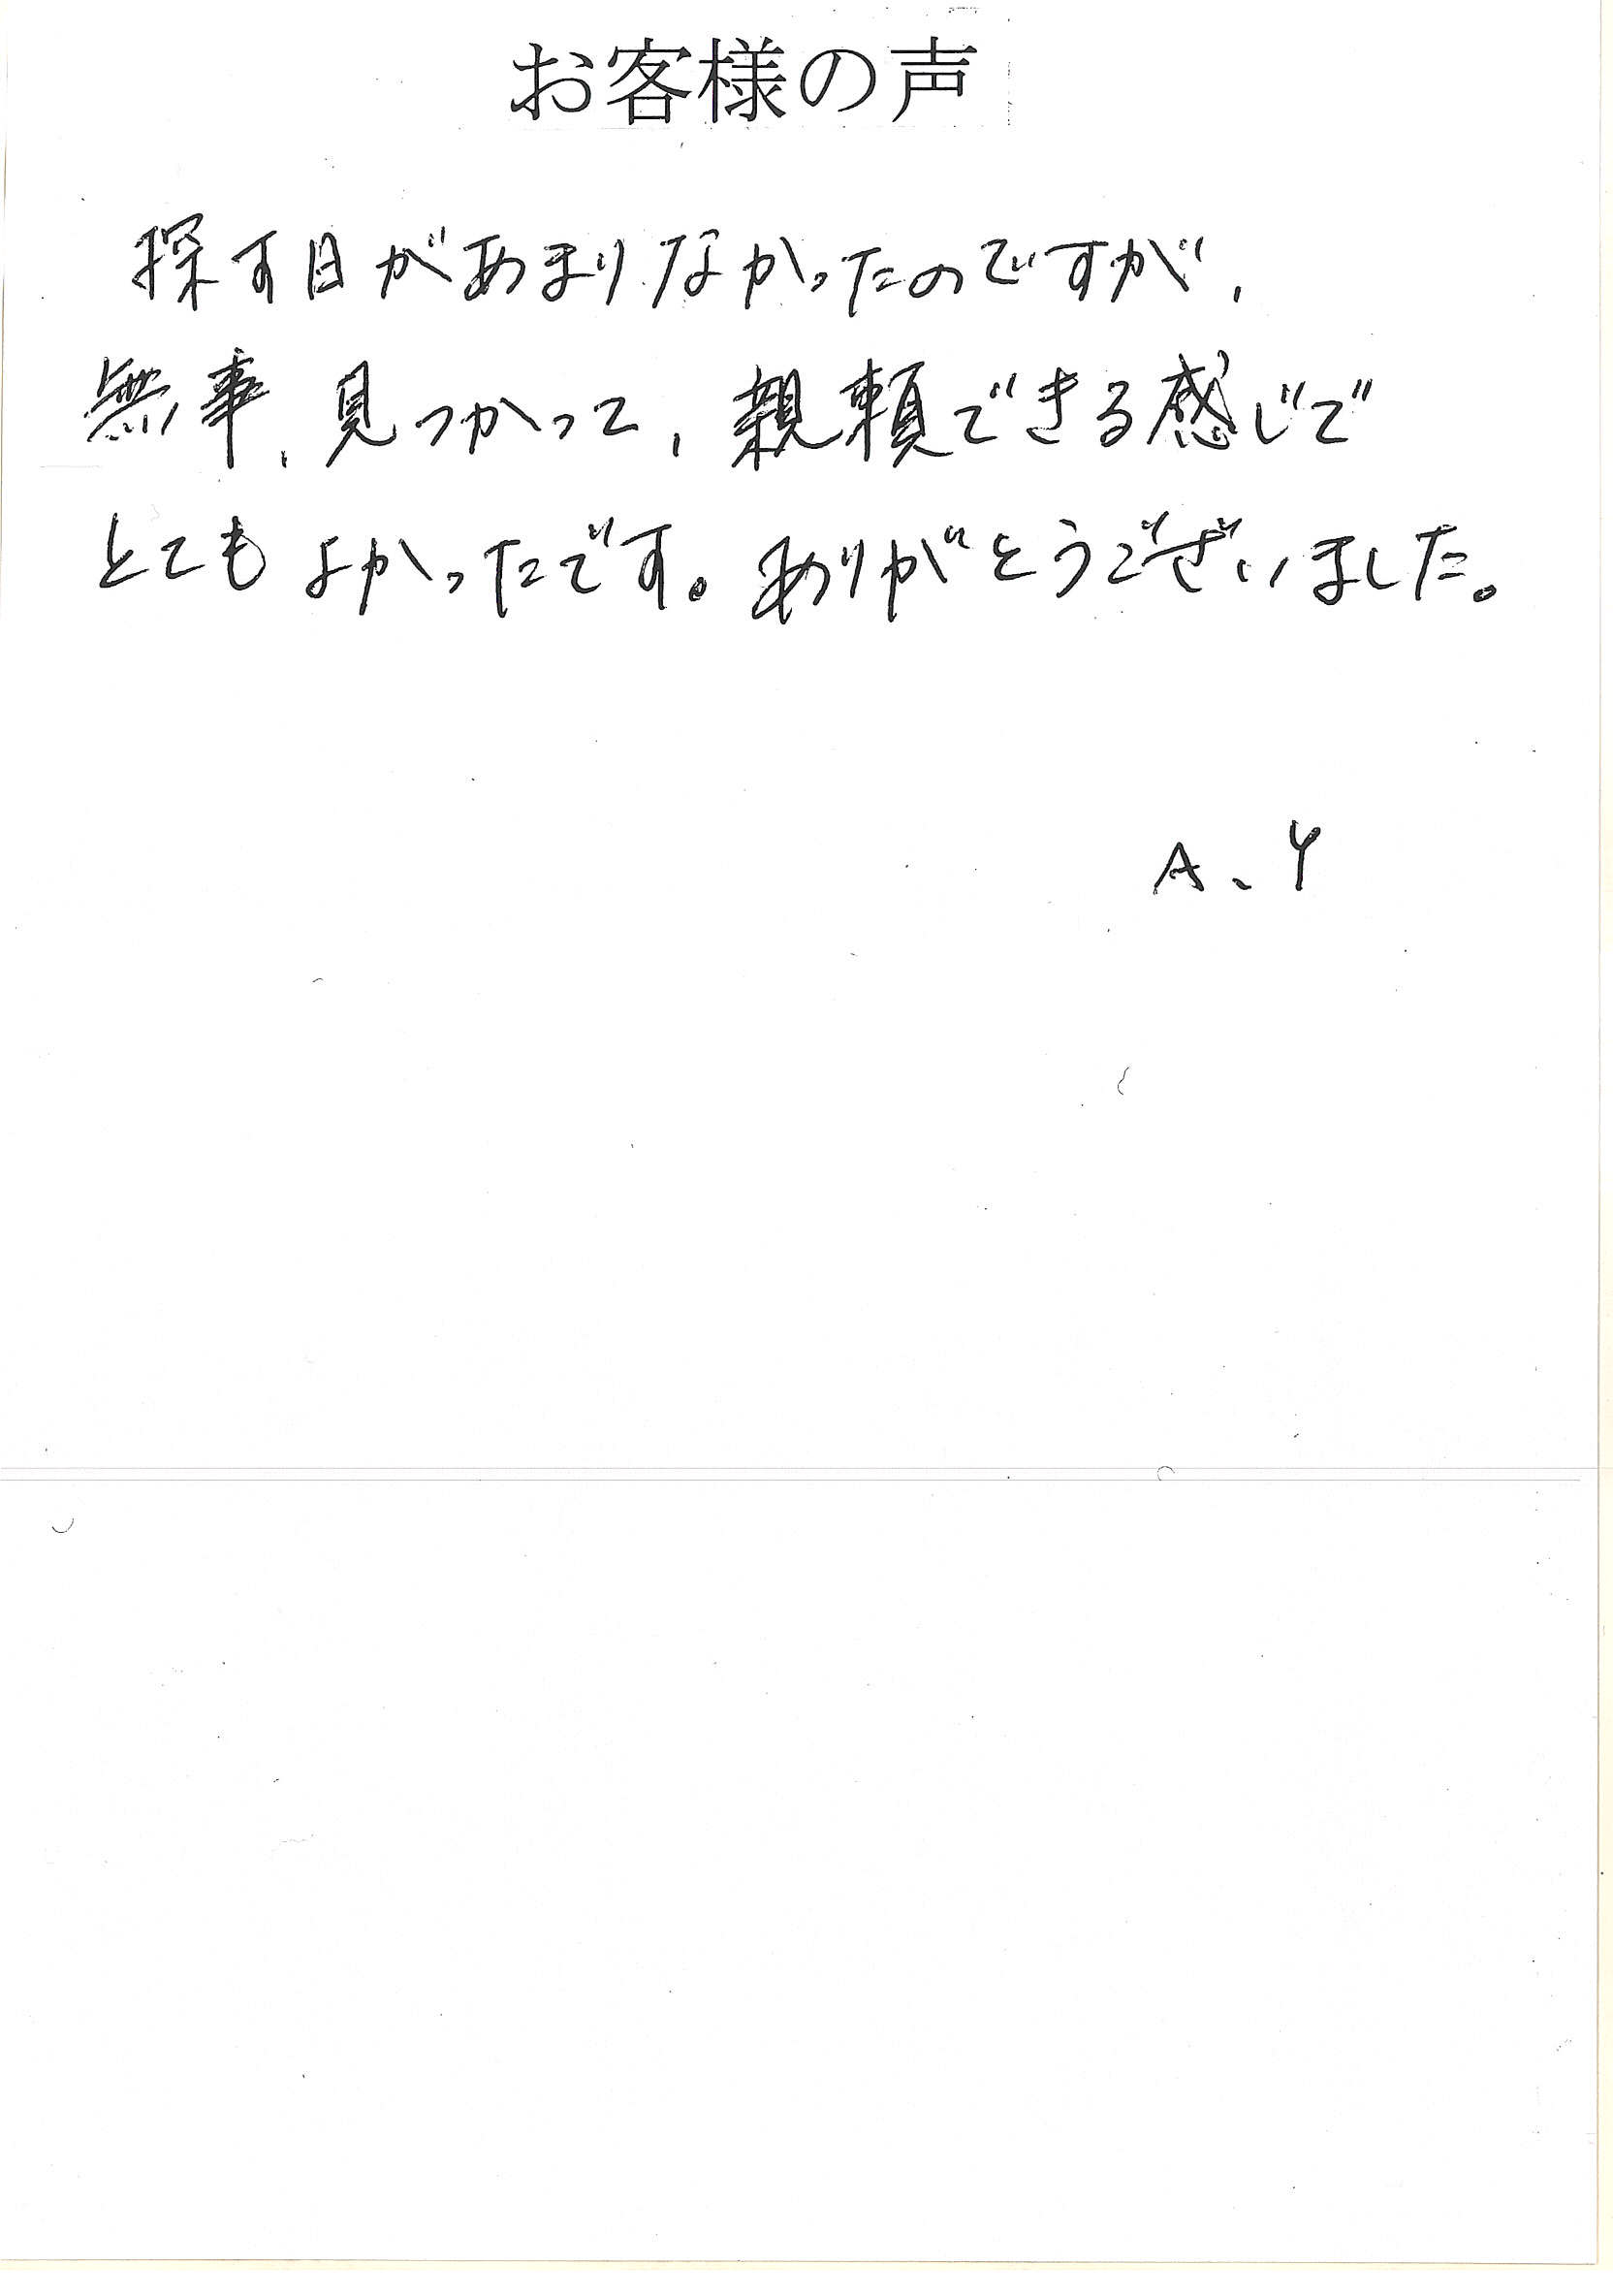 お客様の声
探す日があまりなかったのですが、
無事、見つかって、親頼できる感じで
とてもよかったです。ありがとうございました。
A、Y